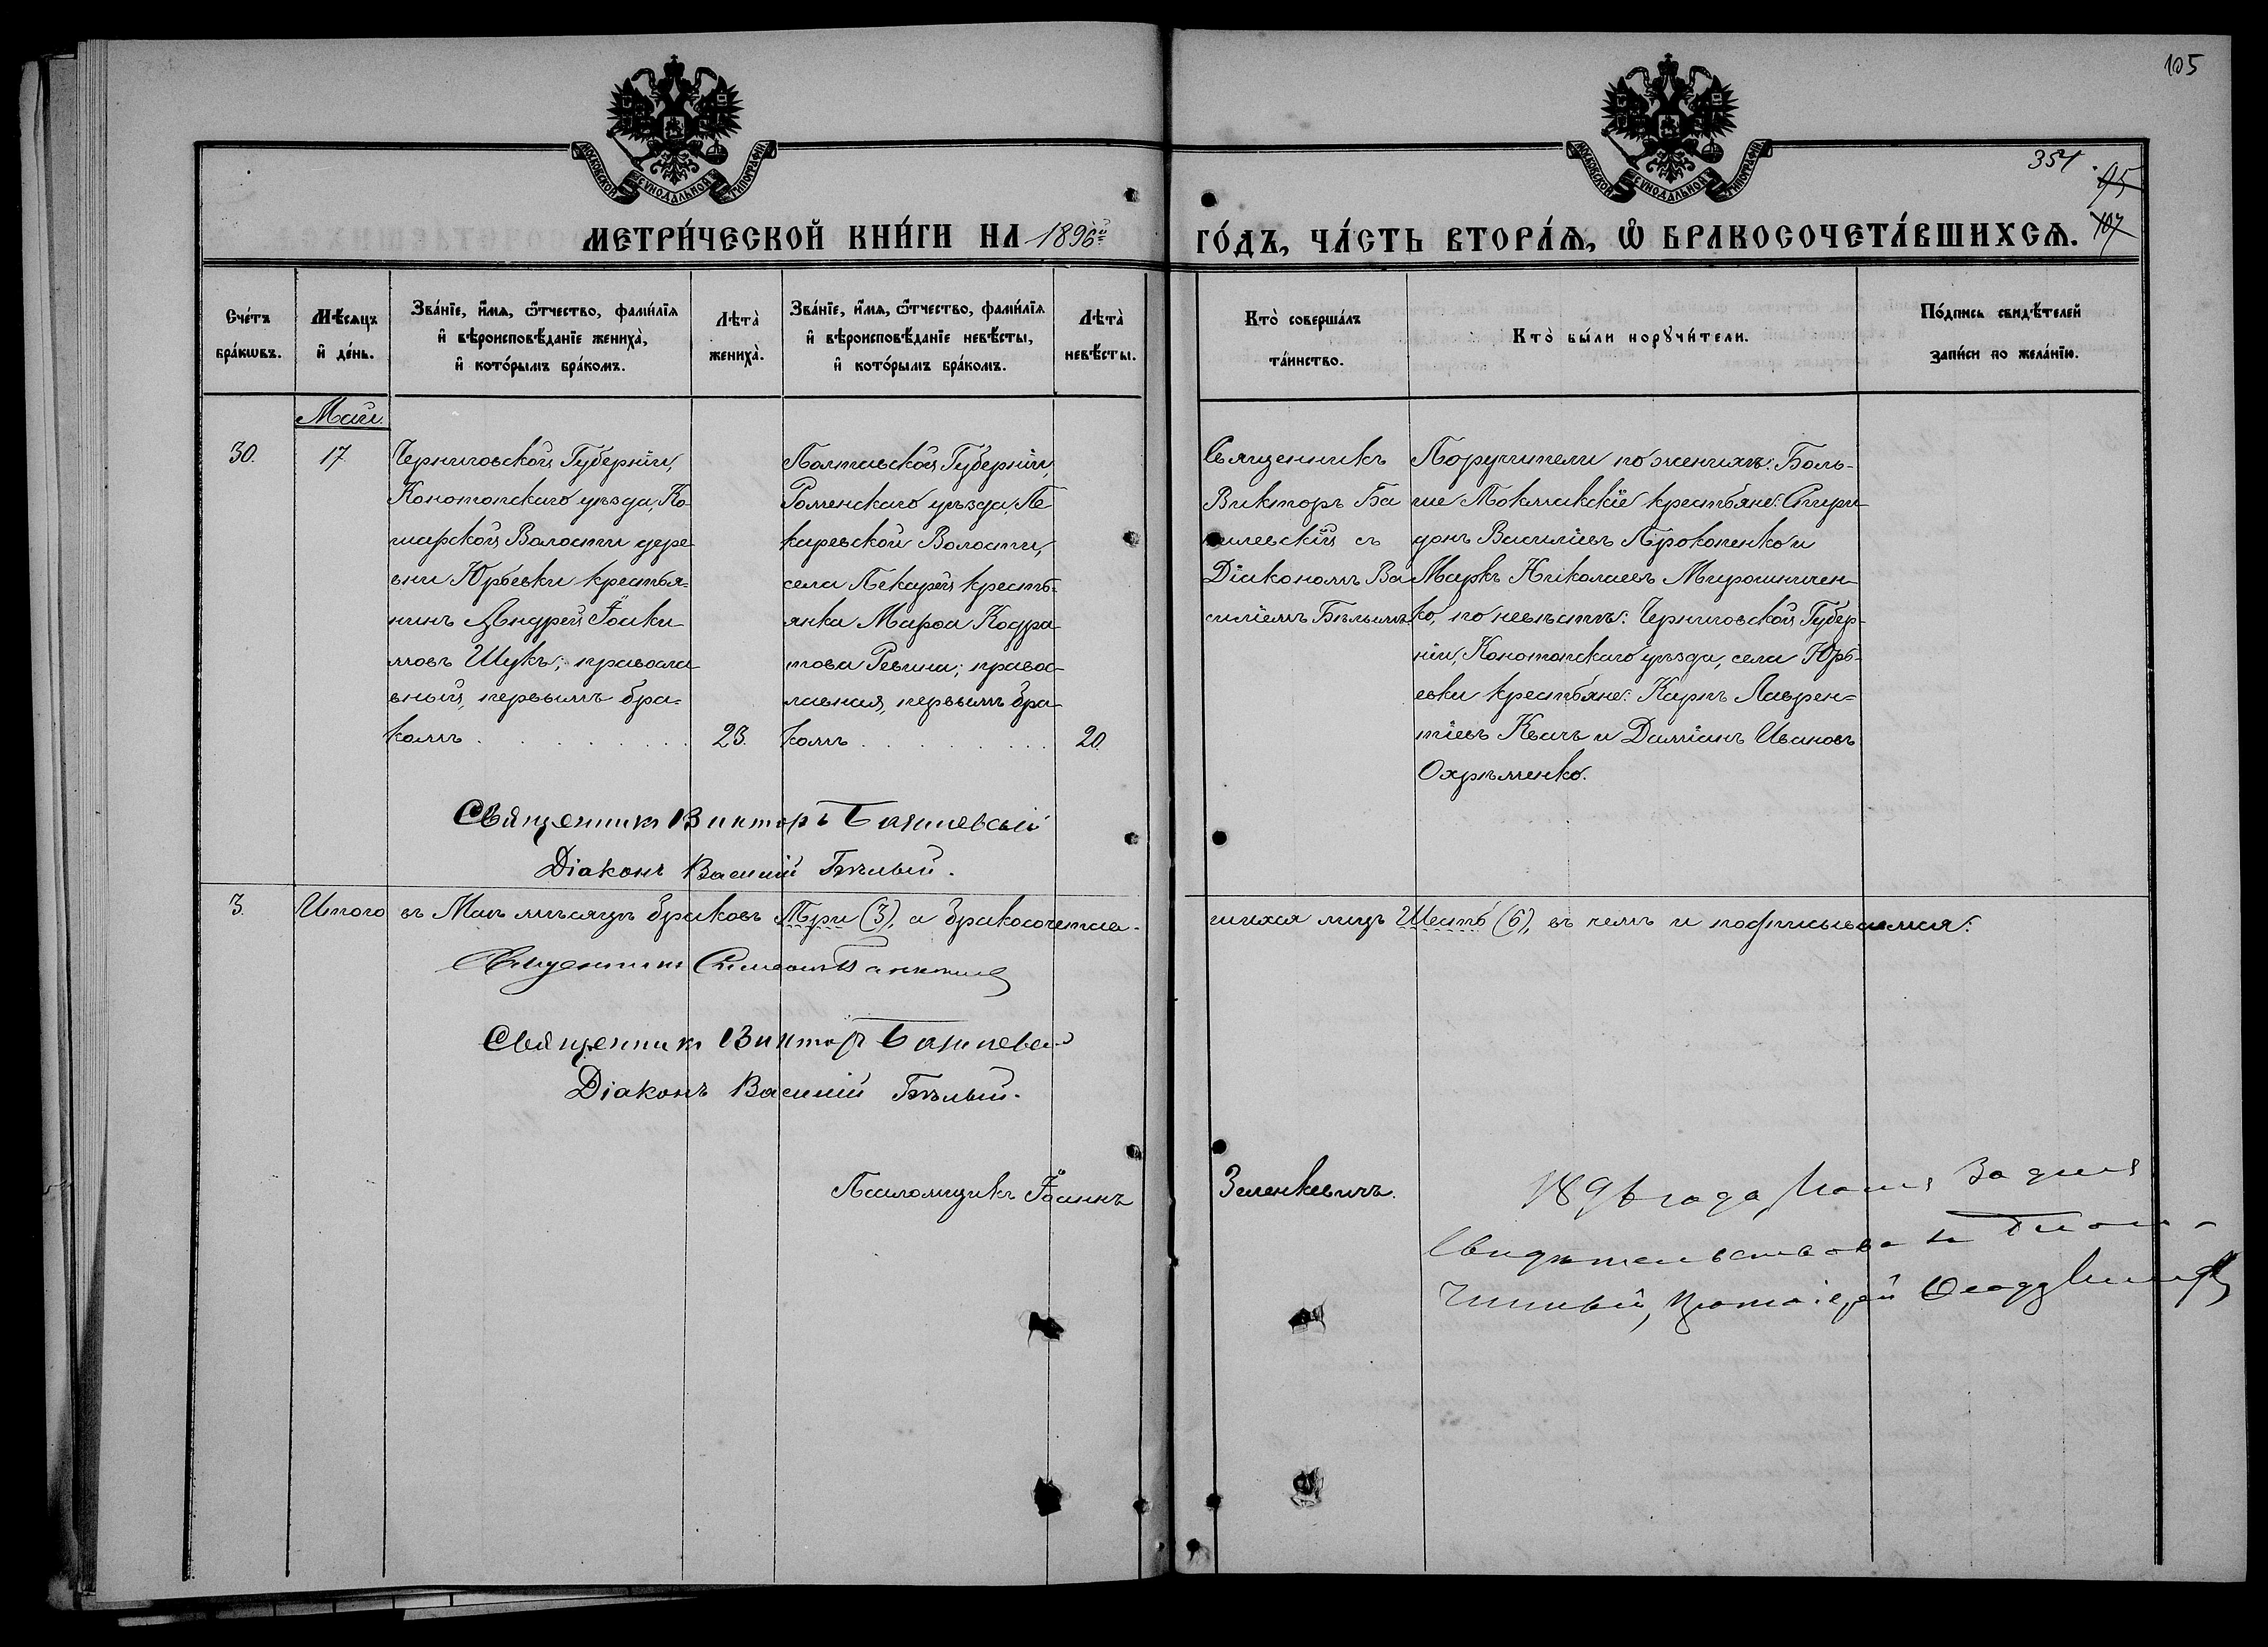 105
МОСКОВСКОЙ СУНОДАЛЬНОЙ ТИПОГРАФІИ
МОСКОВСКОЙ СУНОДАЛЬНОЙ ТИПОГРАФІИ
354
95
107
МЕТРИ́ЧЕСКОЙ КНИ́ГИ НА 1896й
ГО́ДЪ, ЧА́СТЬ ВТОРА́Ѧ, Ѽ БРАКОСОЧЕТА́ВШИХСѦ.
Сче́тъ
бра́кѡвъ.
Мѣ́сяцъ
и҆ де́нь.
Зва́нїе, и҆́мя, ѻ҆́тчество, фами́лїя
и҆ вѣроисповѣ́данїе жениха̀,
и҆ кото́рымъ бра́комъ.
Лѣта̀
жениха̀.
Зва́нїе, и҆́мя, ѻ҆́тчество, фами́лїя
и҆ вѣроисповѣ́данїе невѣ́сты,
и҆ кото́рымъ бра́комъ.
Лѣта̀
невѣ́сты.
Кто̀ соверша́лъ
та́инство.
Кто̀ бы́ли порꙋчи́тели.
По́дпись свидѣ́телей
за́писи по жела́нїю.
Май.
30.
17
Черниговской Губерніи,
Конотопскаго уѣзда, Ко-
шарской Волости дере-
вни Юрьевки крестья-
нинъ Андрей Іоаки-
мовъ Шукъ; правосла-
вный, первымъ бра-
комъ
23.
Полтавской Губерніи,
Роменскаго уѣзда, Пе
каревской Волости,
села Пекарей кресть-
янка Марѳа Кодра
това Ревина; правос-
лавная, первымъ бра-
комъ
20.
Священникъ
Викторъ Ба
вскій съ
Діакономъ Ва
силіемъ Бѣлымъ
Поручители по женихѣ: Боль-
ше Токмакскіе крестьяне: Спири-
донъ Василіевъ Прокопенко и
Маркъ Николаевъ Мирошничен-
ко, по невѣстѣ: Черниговской Губер-
ніи, Конотопскаго уѣзда, села Юрь-
евки крестьяне: Карпъ Лаврен-
тіевъ Квачъ и Даміанъ Ивановъ
Охрѣменко.
Священникъ Викторъ
Діаконъ Василій Бѣлый.
3.
Итого въ Маѣ мѣсяцѣ браковъ Три (3), а бракосочетав-
шихся лицъ Шесть (6), въ чемъ и подписываемся:
Священникъ Симеонъ
Священникъ Викторъ
Діаконъ Василій Бѣлый.
Псаломщикъ Іоаннъ Зеленкевичъ.
1896 года, дня
Свидѣтельствовалъ Благо-
чинный, Протоіерей